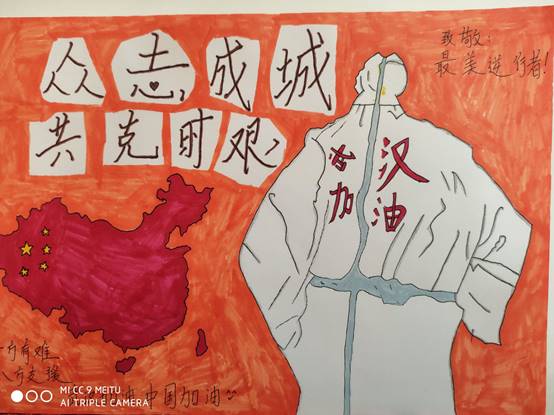 众志成城
共克时艰
致敬:
最美逆行者!
武汉
加油
一方有难
八方支援
加油中国加油
MI CC 9 MEITU
AI TRIPLE CAMERA